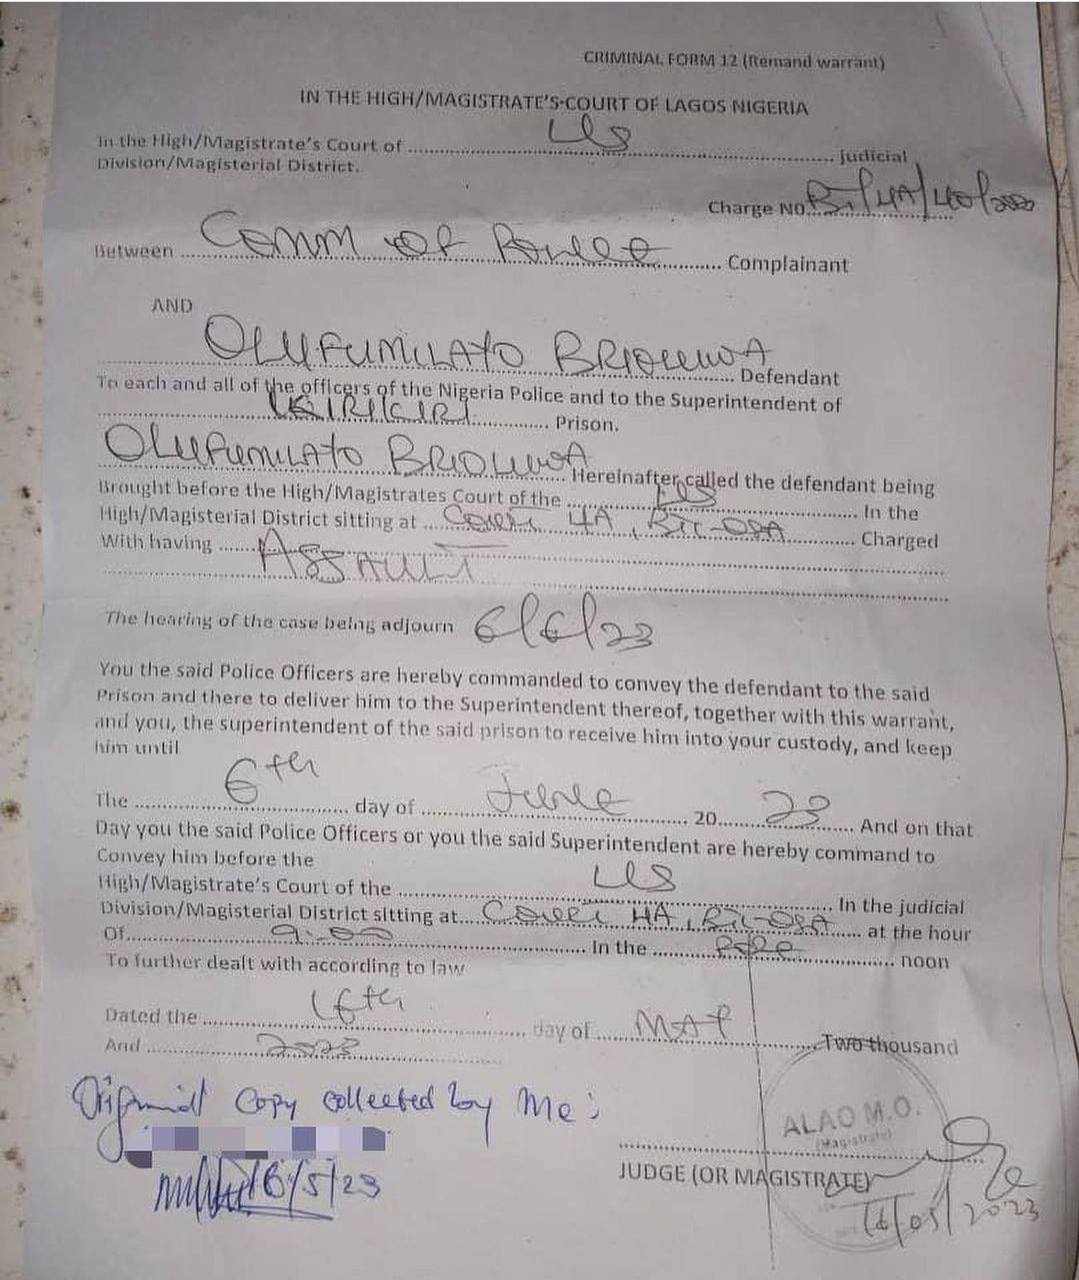 CRIMINAL FORM 12 (Remand warrant)
IN THE HIGH/MAGISTRATE'S COURT OF LAGOS NIGERIA
In the High/Magistrate's Court of ........ judicial
Division/Magisterial District.
Charge NO.
Between ........ Comm of Police ........ Complainant
AND
OLUFUMILAYO BRIOLUWA ........ Defendant
To each and all of the officers of the Nigeria Police and to the Superintendent of
KIRIKIRI ........ Prison.
OLUFUMILAYO BRIOLUWA ........ Hereinafter called the defendant being
Brought before the High/Magistrates Court of the ........ In the
High/Magisterial District sitting at ........ Court 4A, ........ Charged
With having ........ ASSAULT
The hearing of the case being adjourn 6/6/23
You the said Police Officers are hereby commanded to convey the defendant to the said
Prison and there to deliver him to the Superintendent thereof, together with this warrant,
and you, the superintendent of the said prison to receive him into your custody, and keep
him until
The ........ 6th ........ day of ........ June ........ 20 ........ 23 ........ And on that
Day you the said Police Officers or you the said Superintendent are hereby command to
Convey him before the
High/Magistrate's Court of the ........ In the judicial
Division/Magisterial District sitting at ........ Court 4A, ........ at the hour
Of ........ 9:00 ........ In the ........ Fore ........ noon
To further dealt with according to law
Dated the ........ 16th ........ day of ........ MAY ........ Two thousand
And ........ 2023
Original Copy collected by Me:
16/5/23
ALAO M.O.
(Magistrate)
JUDGE (OR MAGISTRATE)
16/05/2023